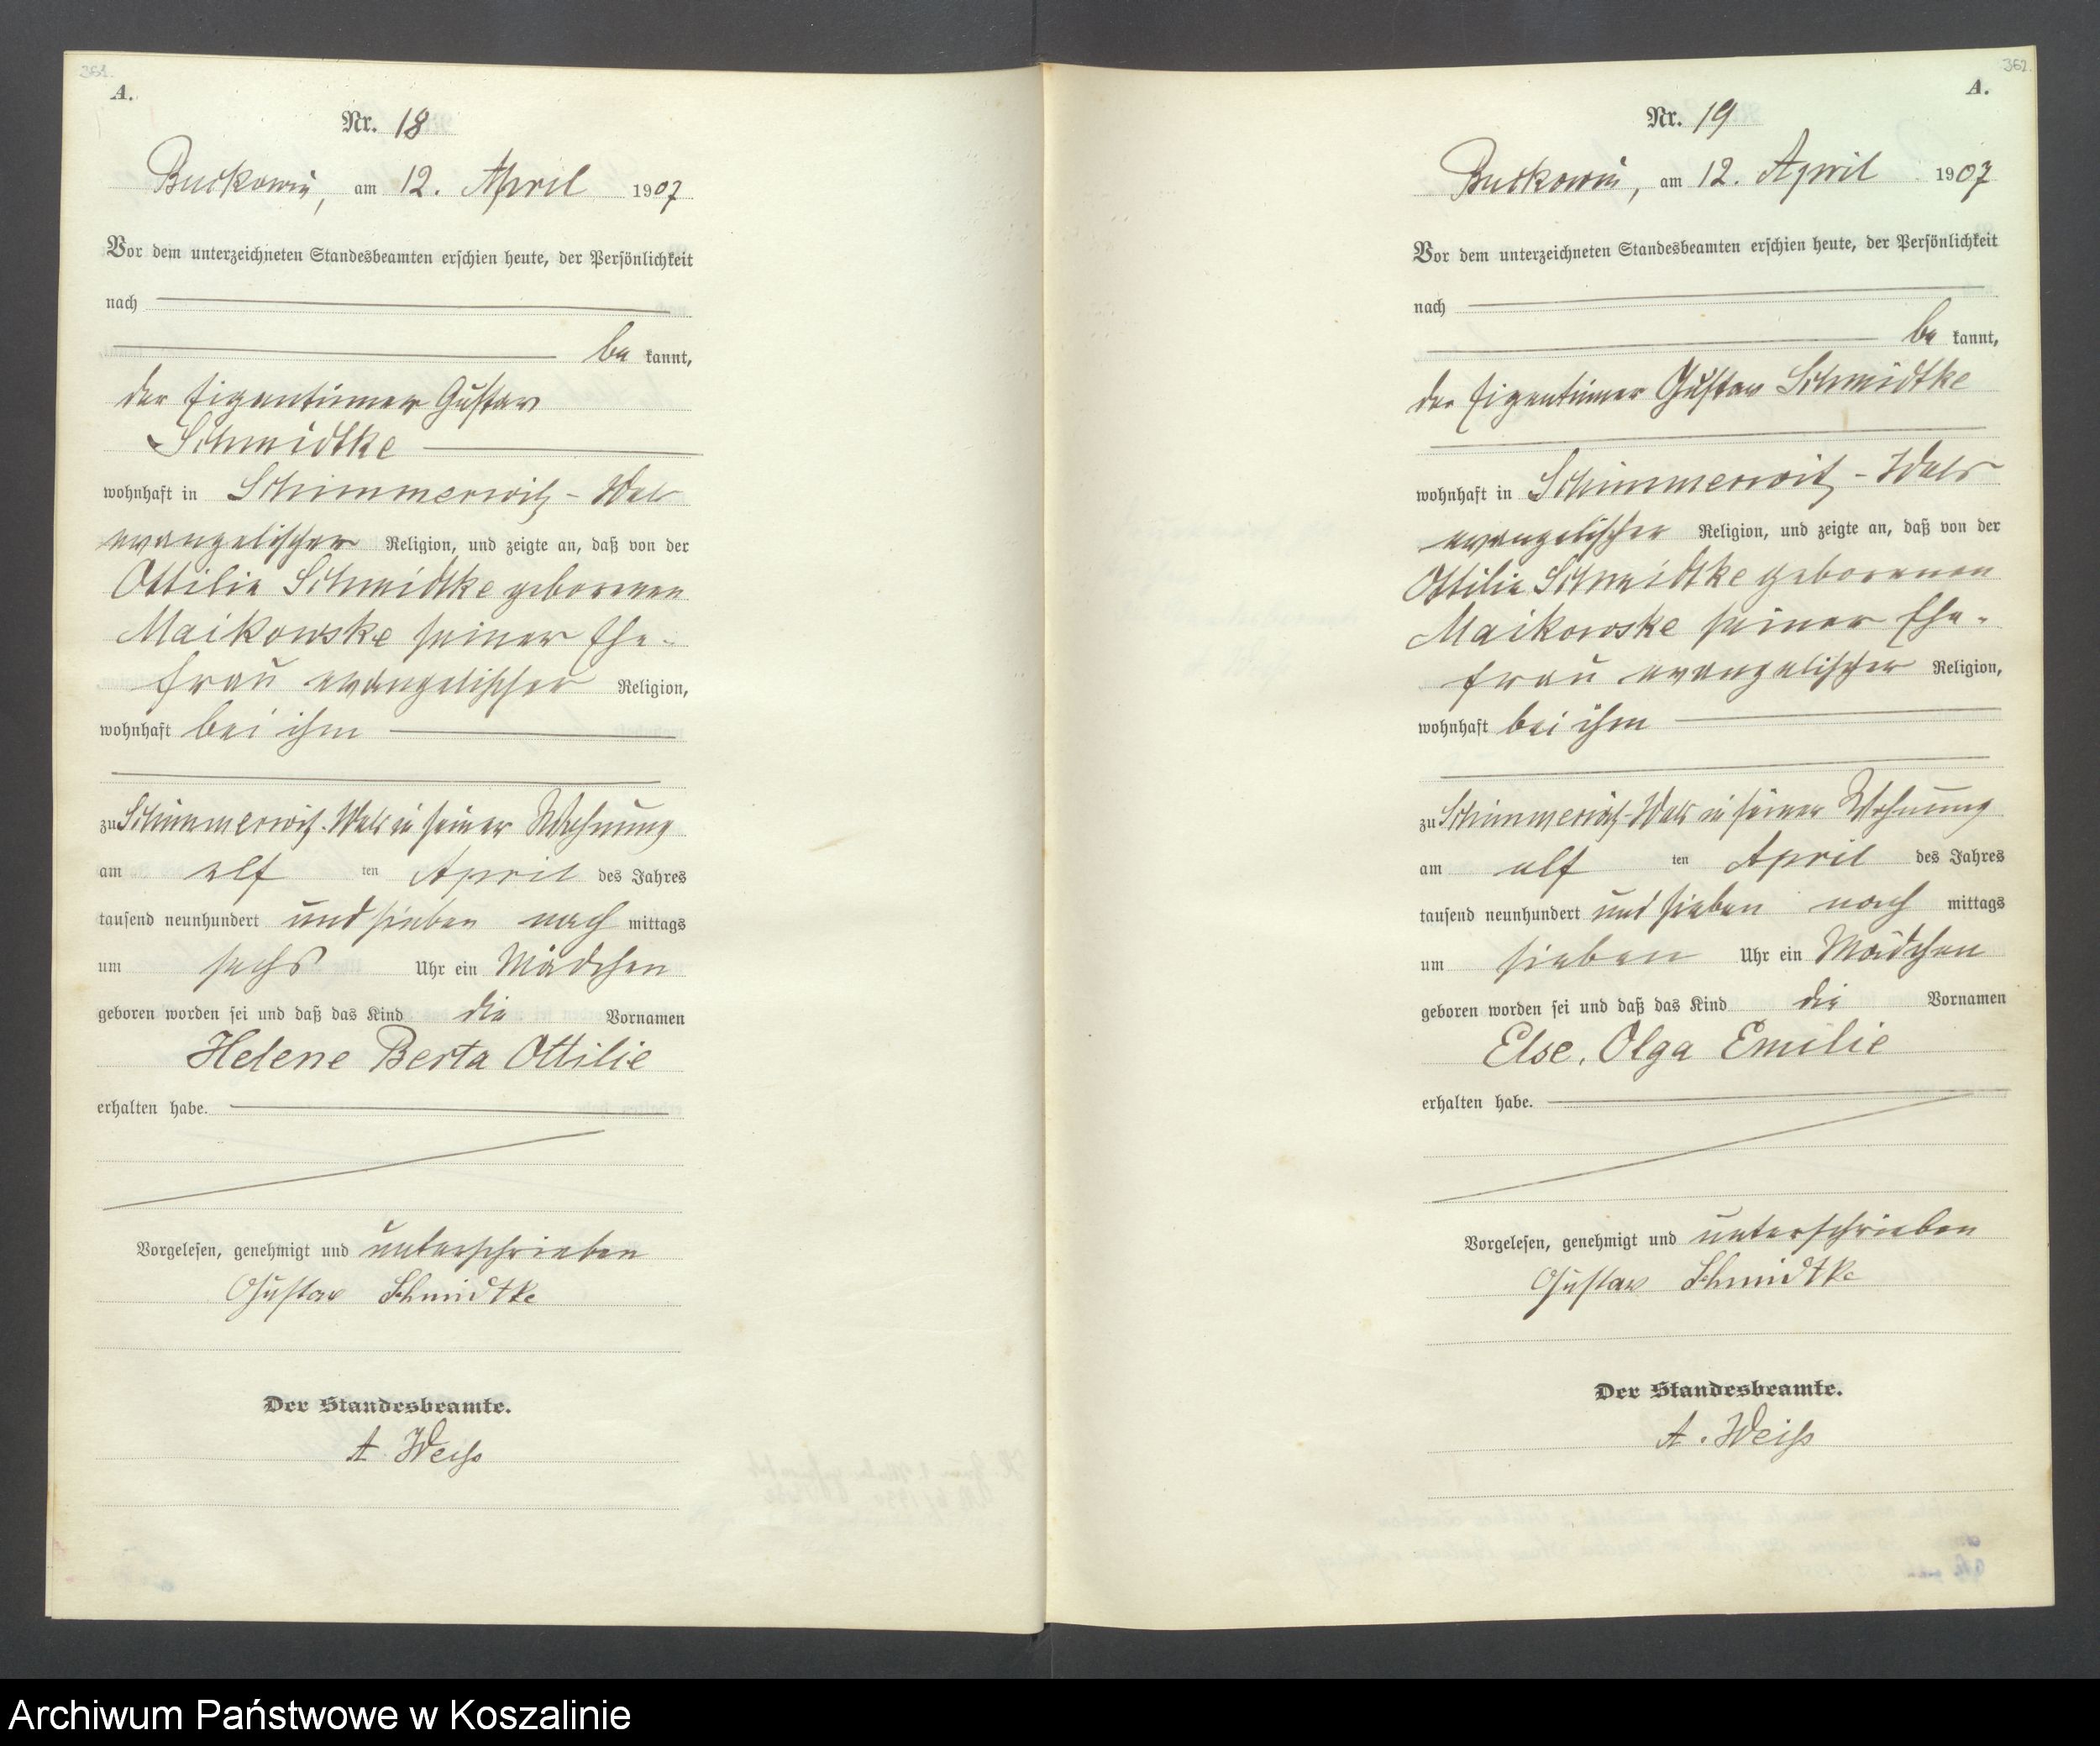 361.
A.
Nr. 18
Buckowin, am 12. April 1907
Vor dem unterzeichneten Standesbeamten erschien heute, der Persönlichkeit
nach
be kannt,
der Eigentümer Gustav
Schmidtke
wohnhaft in Schimmerwitz-
evangelischer Religion, und zeigte an, daß von der
Ottilie Schmidtke geborenen
Maikowske seiner Ehe-
frau evangelischer Religion,
wohnhaft bei ihm
zu Schimmerwitz- in seiner Wohnung
am elf ten April des Jahres
tausend neunhundert und sieben nach mittags
um sechs Uhr ein Mädchen
geboren worden sei und daß das Kind die Vornamen
Helene Berta Ottilie
erhalten habe.
Vorgelesen, genehmigt und unterschrieben
Gustav Schmidtke
Der Standesbeamte.
A. Weiß
362.
A.
Nr. 19
Buckowin, am 12. April 1907
Vor dem unterzeichneten Standesbeamten erschien heute, der Persönlichkeit
nach
be kannt,
der Eigentümer Gustav Schmidtke
wohnhaft in Schimmerwitz-
evangelischer Religion, und zeigte an, daß von der
Ottilie Schmidtke geborenen
Maikowske seiner Ehe-
frau evangelischer Religion,
wohnhaft bei ihm
zu Schimmerwitz- in seiner Wohnung
am elf ten April des Jahres
tausend neunhundert und sieben nach mittags
um sieben Uhr ein Mädchen
geboren worden sei und daß das Kind die Vornamen
Else, Olga Emilie
erhalten habe.
Vorgelesen, genehmigt und unterschrieben
Gustav Schmidtke
Der Standesbeamte.
A. Weiß
Archiwum Państwowe w Koszalinie